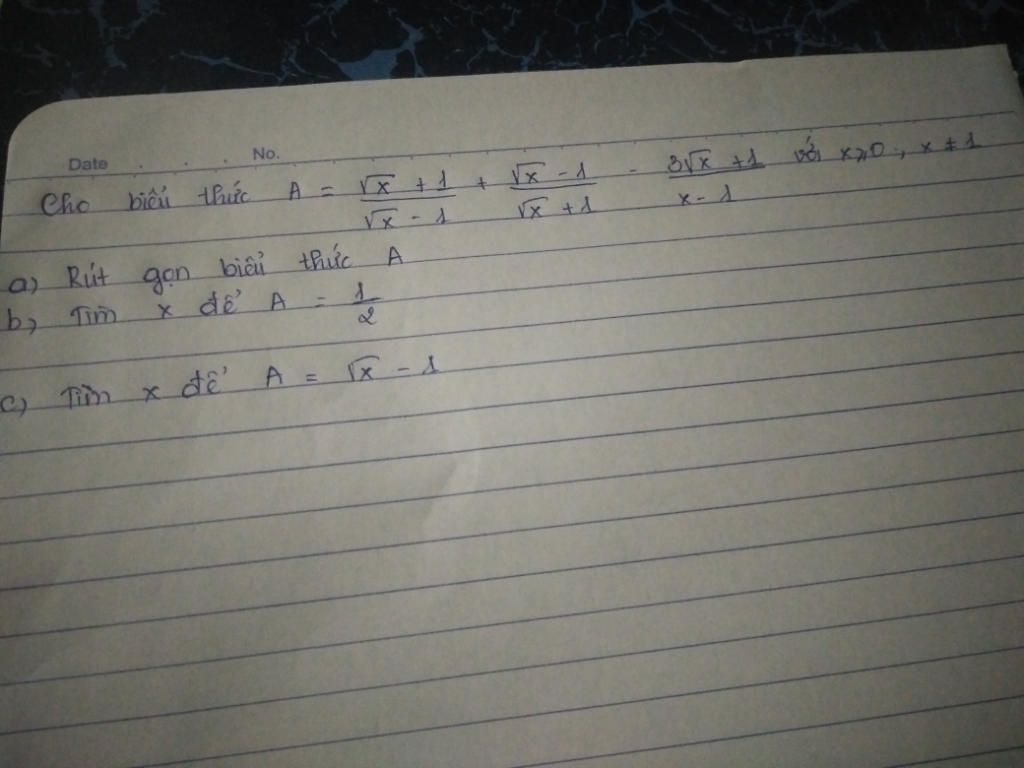 Date . . . No.
Cho biểu thức A = (√x + 1)/(√x - 1) + (√x - 1)/(√x + 1) - (3√x + 1)/(x - 1) với x ⩾ 0 , x ≠ 1
a) Rút gọn biểu thức A
b) Tìm x để A = 1/2
c) Tìm x để A = √x - 1